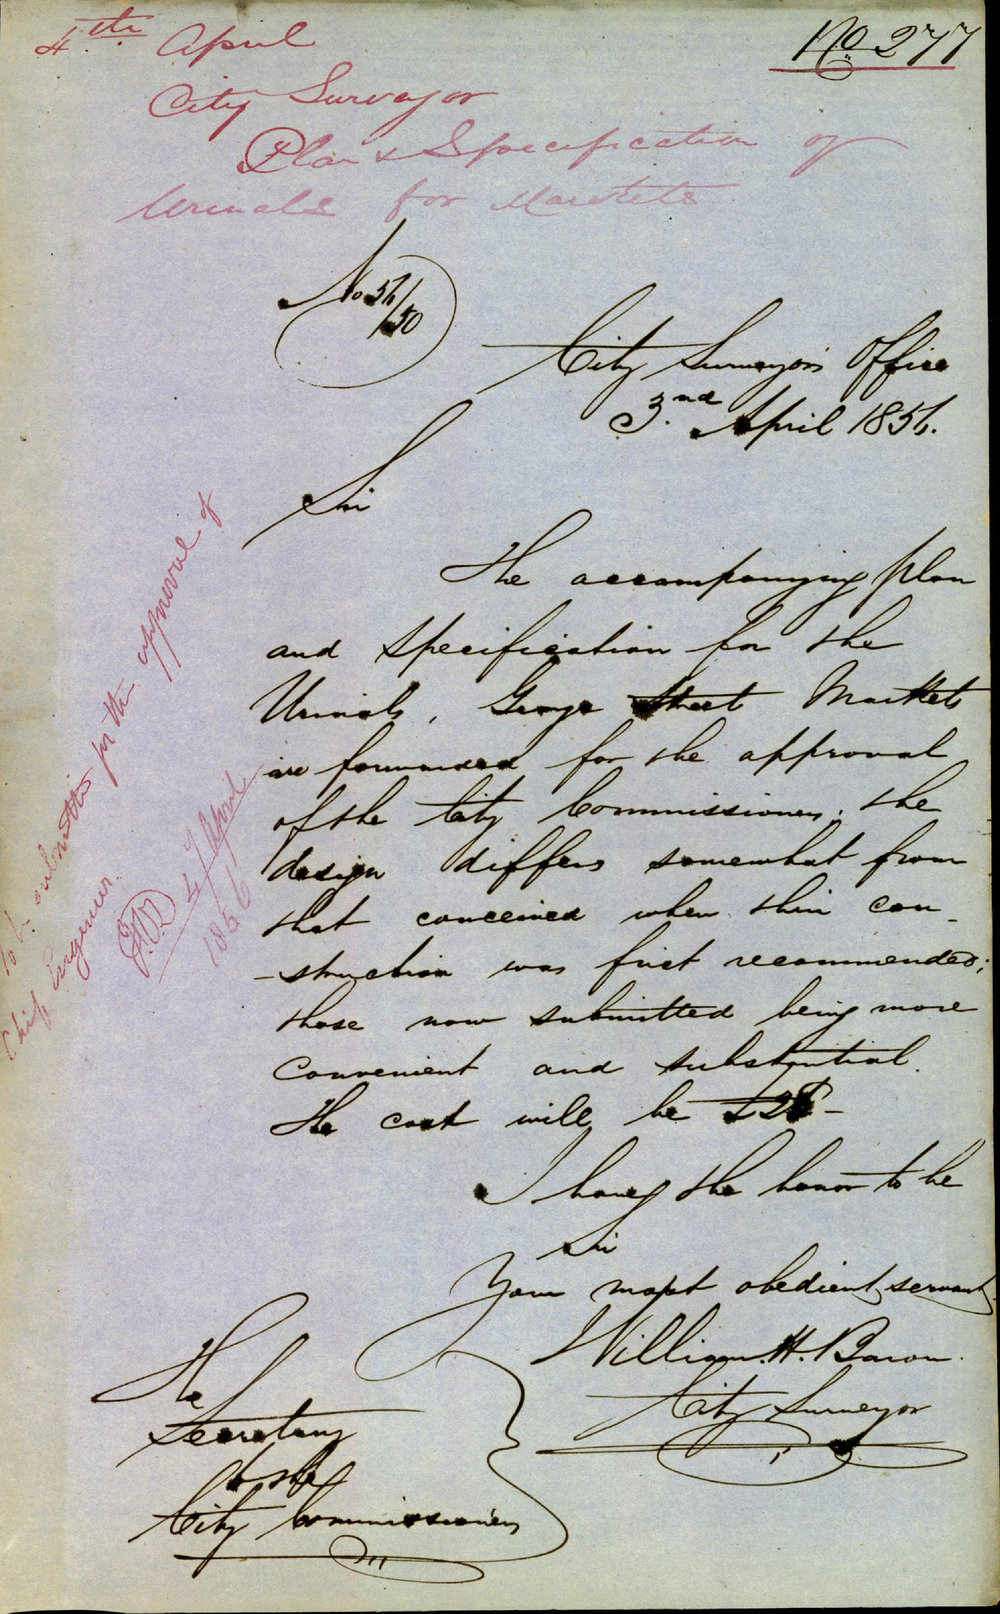 4th April
No 277
City Surveyor
Plan & Specification of
Urinals for Markets
No 56/50
City Surveyor's Office
3nd April 1856.
Sir
The accompanying plan
and Specification for the
Urinals, George Street Markets
are forwarded for the approval
of the City Commissioners. The
design differs somewhat from
that conceived when this con-
-struction was first recommended;
those now submitted being more
convenient and substantial.
The cost will be £2
I have the honor to be
Sir
Your most obedient servant
William H. Baron.
City Surveyor
The
Secretary
of the
City Commissioners
To be submitted for the approval of
Chief Engineer.
4/ April
1856